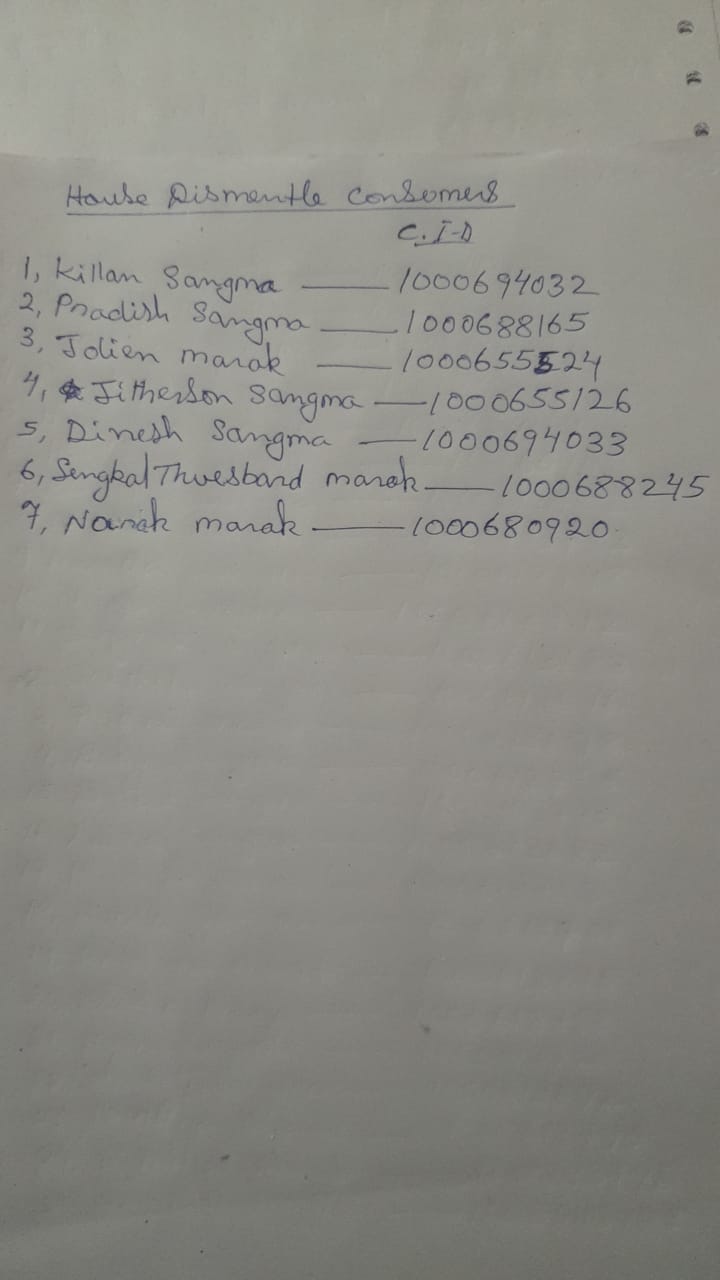 House Dismentle Consumers
C.I-D
1, Killan Sangma — 1000694032
2, Pradish Sangma — 1000688165
3, Jolien marak — 1000655524
4, Jitherson Sangma — 1000655126
5, Dinesh Sangma — 1000694033
6, Sengkal Thuesbard marak — 1000688245
7, Nanak marak — 1000680920